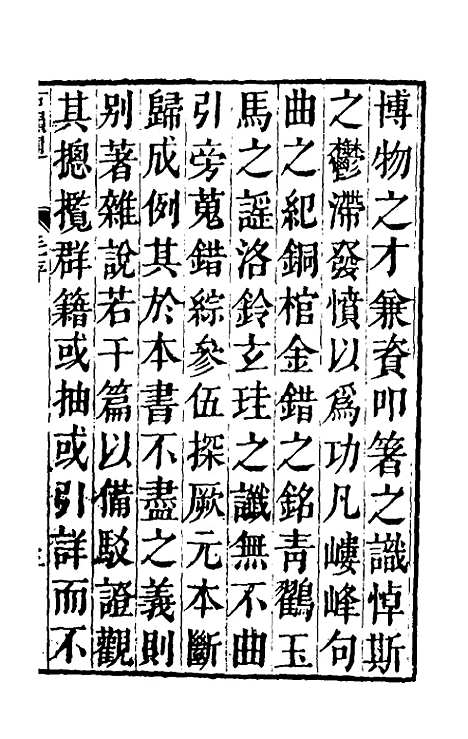 博物之才兼資叩箸之識悼斯
之鬱滯發憤以爲功凡嶁峰句
曲之紀銅棺金錯之銘青鸛玉
馬之謡洛鈴玄珪之讖無不曲
引旁蒐錯綜參伍探厥元本斷
歸成例其於本書不盡之義則
别著雜說若干篇以備駁證觀
其摠攬群籍或抽或引詳而不